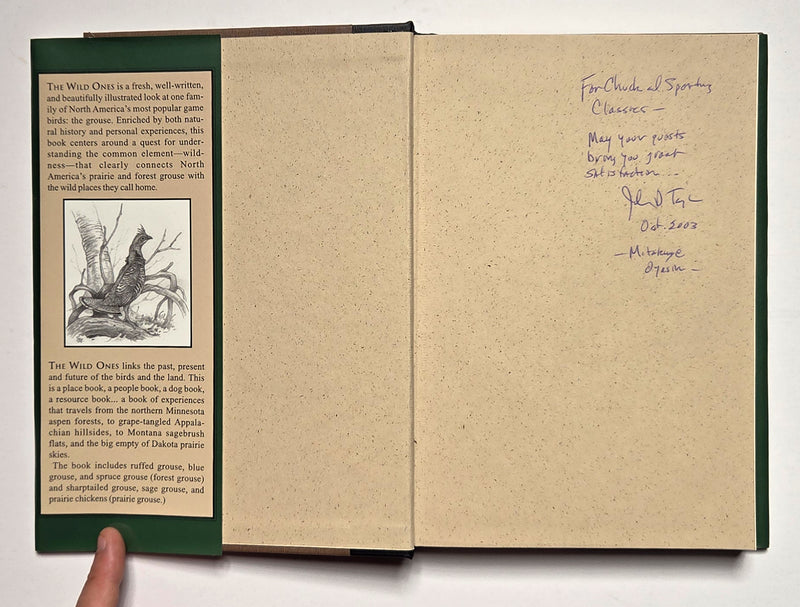 THE WILD ONES is a fresh, well-written,
and beautifully illustrated look at one fam-
ily of North America's most popular game
birds: the grouse. Enriched by both natu-
ral history and personal experiences, this
book centers around a quest for under-
standing the common element—wild-
ness—that clearly connects North
America's prairie and forest grouse with
the wild places they call home.
THE WILD ONES links the past, present
and future of the birds and the land. This
is a place book, a people book, a dog book,
a resource book... a book of experiences
that travels from the northern Minnesota
aspen forests, to grape-tangled Appala-
chian hillsides, to Montana sagebrush
flats, and the big empty of Dakota prairie
skies.
The book includes ruffed grouse, blue
grouse, and spruce grouse (forest grouse)
and sharptailed grouse, sage grouse, and
prairie chickens (prairie grouse.)
For Chuck at Sporting
Classics —
May your quests
bring you great
satisfaction ...
Oct. 2003
— Mitakuye
Oyasin —